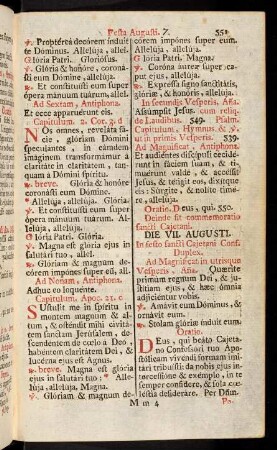 Festa Augusti. 7. 551
℣. Proptérea decórem indúit
te Dóminus. Allelúja, allel.
Glória Patri. Gloriósus.
℣. Glória & honóre, coroná-
sti eum Dómine, allelúja.
℞. Et constituísti eum super
ópera mánuum tuárum, allel.
Ad Sextam, Antiphona.
Et ecce apparuérunt eis.
Capitulum. 2. Cor. 3. d
NOs omnes, reveláta fá-
cie, glóriam Dómini
speculántes, in eámdem
imáginem transformámur a
claritáte in claritátem, tan-
quam a Dómini spíritu.
℞. breve. Glória & honóre
coronásti eum Dómine.
Allelúja, allelúja.
℣. Et constituísti eum super
ópera mánuum tuárum. Al-
lelúja, allelúja.
Glória Patri. Glória.
℣. Magna est glória ejus in
salutári tuo, allel.
℞. Glóriam & magnum de-
córem impónes super eum, all.
Ad Nonam, Antiphona.
Adhuc eo loquénte.
Capitulum. Apoc. 21. c
SUstulit me in spíritu in
montem magnum & al-
tum, & osténdit mihi civitá-
tem sanctam Jerúsalem, de-
scendéntem de cœlo a Deo,
habéntem claritátem Dei, &
lucérna ejus est Agnus.
℞. breve. Magna est glória
ejus in salutári tuo: * Alle-
lúja, allelúja. Magna.
℣. Glóriam & magnum de-
córem impónes super eum.
Allelúja, allelúja.
Glória Patri. Magna.
℣. Coróna áurea super
caput ejus, allelúja.
℞. Expréssa signo sanctitátis,
glóriæ, & honóris, allelúja.
In secundis Vesperis, Aña.
Assúmpsit Jesus. cum reliq.
de Laudibus. 549. Psalm.
Capitulum, Hymnus, & ℣.
ut in primis Vesperis. 539.
Ad Magnificat, Antiphona.
Et audiéntes discípuli cecidé-
runt in fáciem suam, & ti-
muérunt valde, & accéssit
Jesus, & tétigit eos, dixítque
eis: Súrgite, & nolíte timé-
re, allelúja.
Oratio. Deus, qui. 550.
Deinde fit commemoratio
sancti Cajetani.
DIE VII. AUGUSTI.
In festo sancti Cajetani Conf.
Duplex.
Ad Magnificat in utrisque
Vesperis, Aña. Quǽrite
primum regnum Dei, & ju-
stítiam ejus, & hæc ómnia
adjiciéntur vobis.
℣. Amávit eum Dóminus, &
ornávit eum.
℞. Stolam glóriæ índuit eum.
Oratio.
DEus, qui beáto Cajetá-
no Confessóri tuo Apo-
stólicam vivéndi formam imi-
tári tribuísti: da nobis ejus in-
tercessióne & exémplo, in te
semper confídere, & sola cœ-
léstia desideráre. Per Dñm.
M m 4 Po-